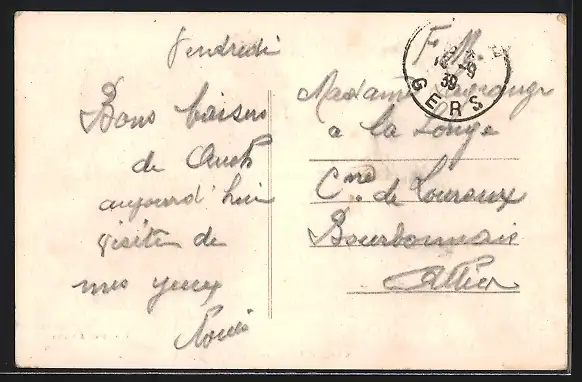 Vendredi
Bons baisers
de Auch
aujourd'hui
visite de
mes yeux
Louis
F. M.
9
39
GERS
Madame
a la Longe
Cne de Louroux
Bourbonnais
Allier